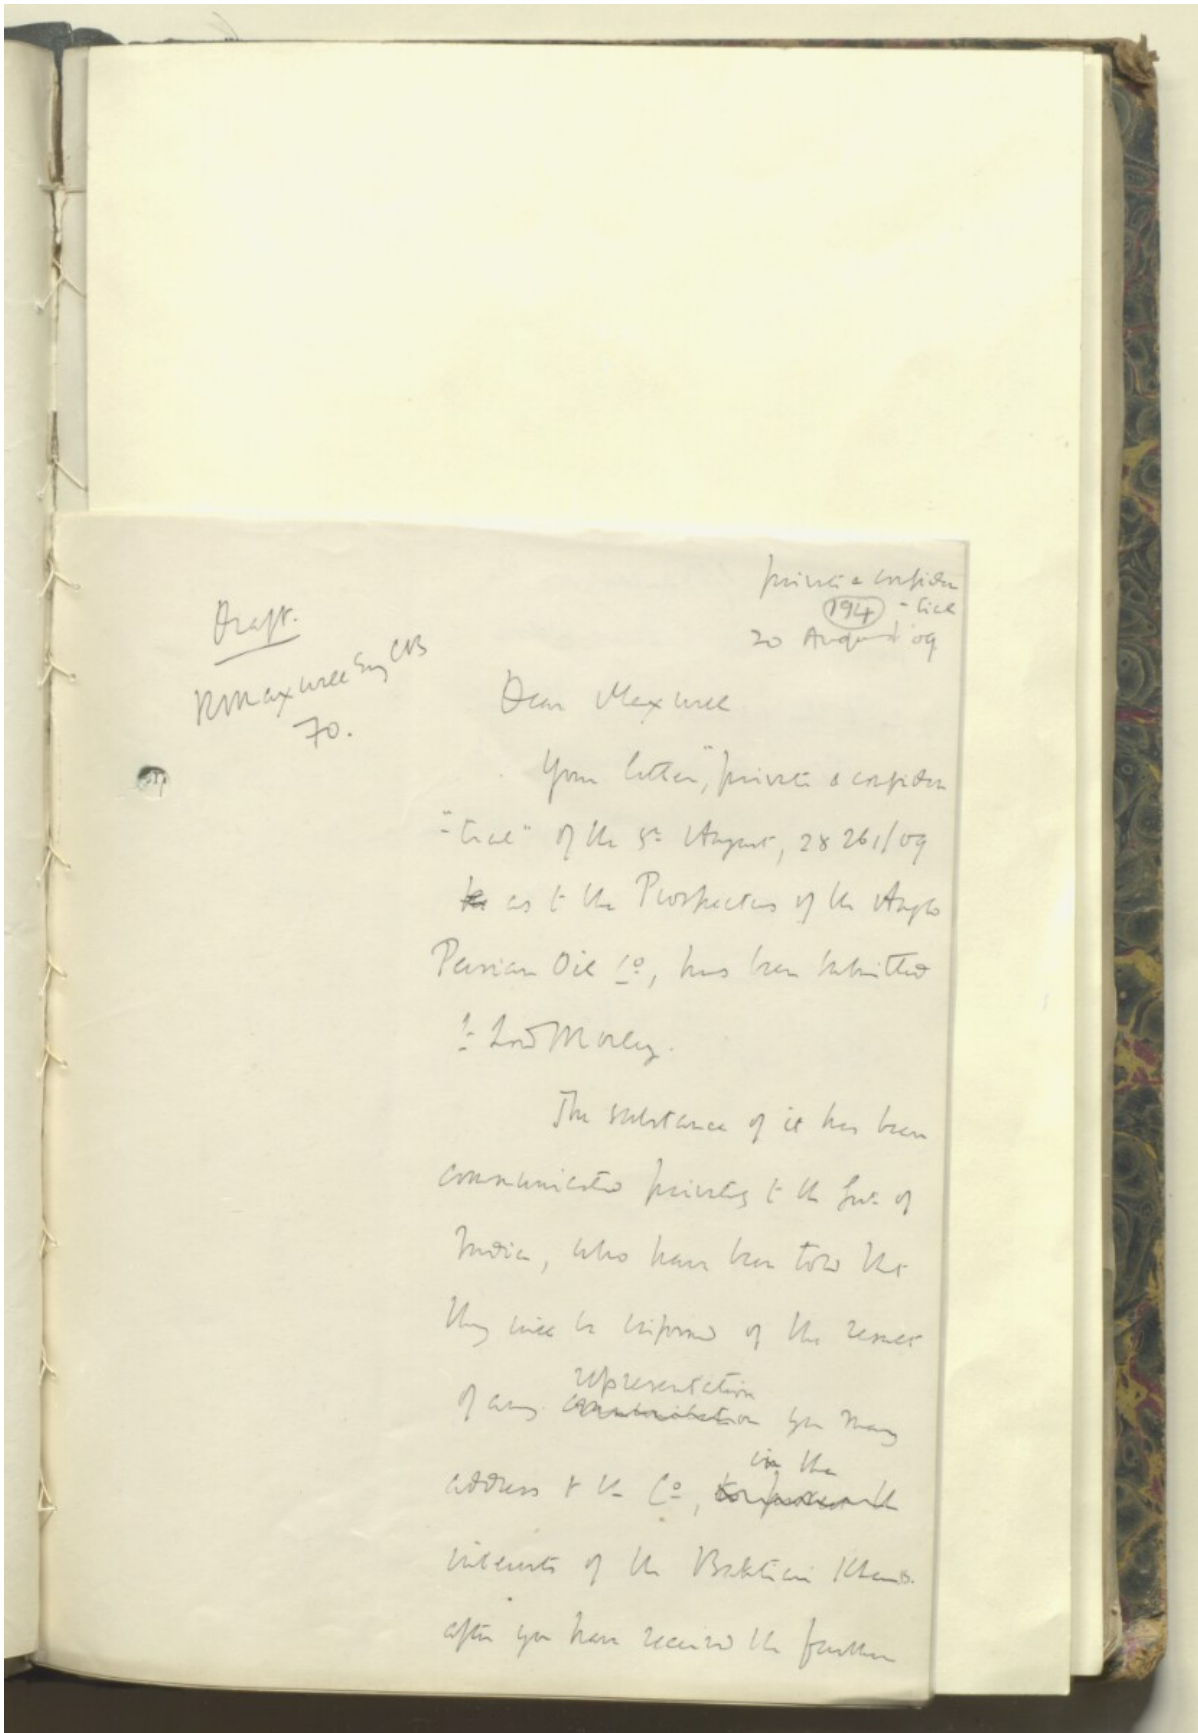 Private & confiden
194 -tial
20 August 09
Draft.
R Maxwell Esq CB
FO.
Dear Maxwell
Your letter, "private & confiden
-tial" of the 5th August, 28261/09
as to the Prospectus of the Anglo
Persian Oil Co, has been submitted
to Lord Morley.
The substance of it has been
communicated privately to the Govt. of
India, who have been told that
they will be informed of the result
representation
of any you may
in the
address to the Co,
interests of the Baktiari Khans.
after you have received the further